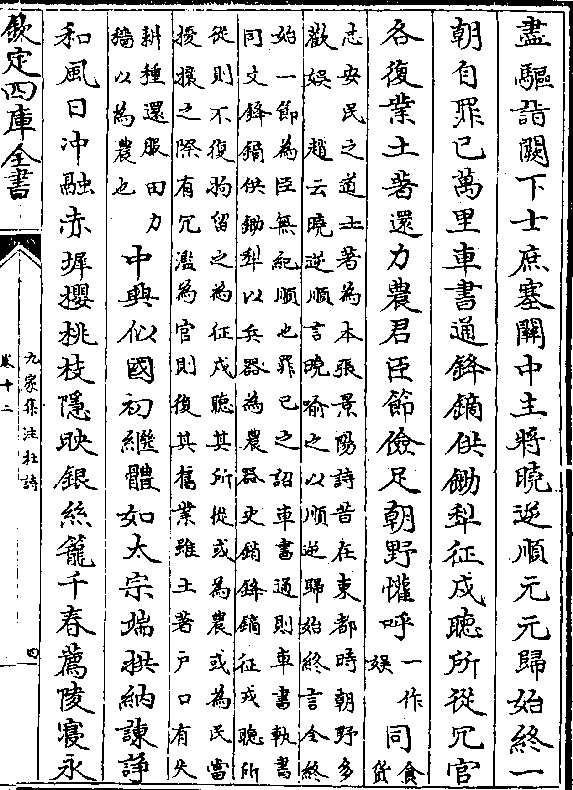 盡驅詣闕下士庶塞關中主將曉逆順元元歸始終一
朝自罪己萬里車書通鋒鏑供鋤犁征戍聽所從冗官
各復業土著還力農君臣節儉足朝野懽呼一作娛同食貨
志安民之道土著為本張景陽詩昔在東都時朝野多
歡娛 趙云曉逆順言曉喻之以順逆歸始終言全終
始一節為臣無紀順也罪己之詔車書通則車書執書
同文鋒鏑供鋤犁以兵器為農器史銷鋒鏑征戍聽所
從則不復拘留之為征戍聽其所從或為農或為民當
擾攘之際有冗濫為官則復其舊業雖土著戶口有失
耕種還服田力
穡以為農也
中興似國初繼體如太宗端拱納諫諍
和風日冲融赤墀櫻桃枝隱映銀絲籠千春薦陵寢永
欽定四庫全書
九家集注杜詩
卷十二
四